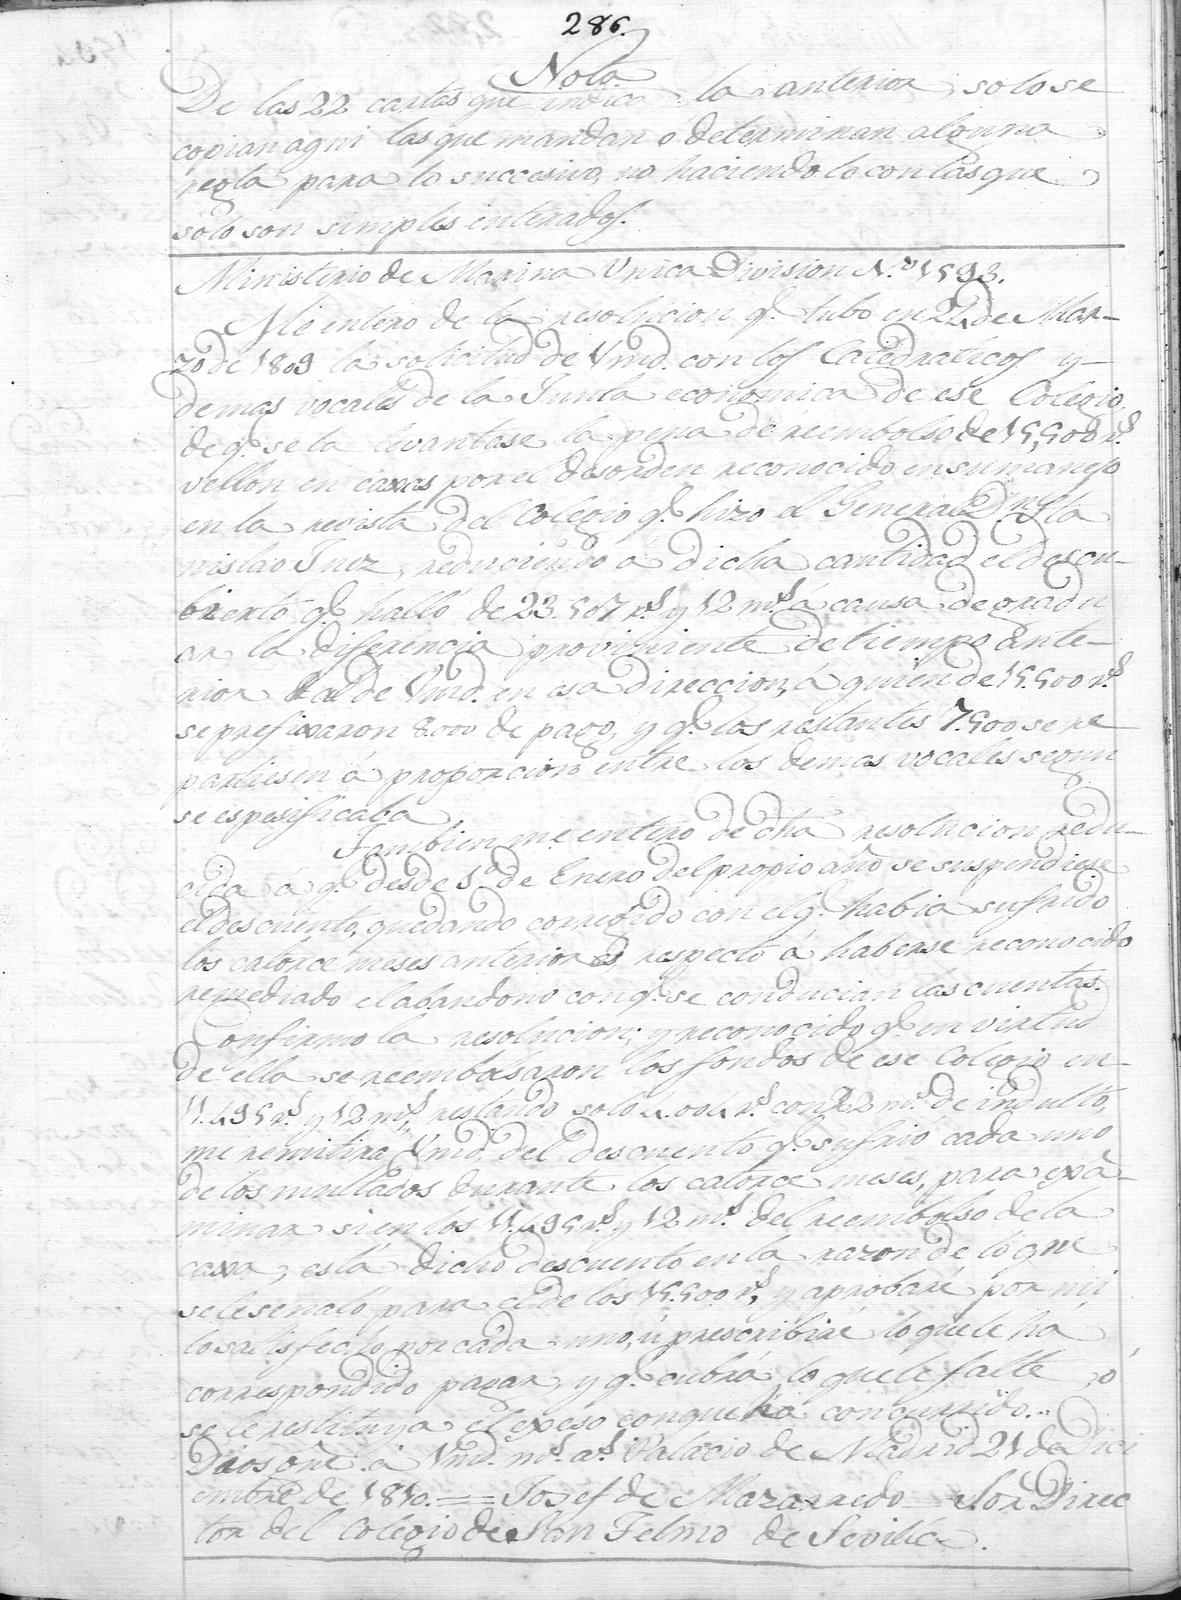 286.
Nota
De las 22 cartas que indica la anterior, solo se
copian aqui las que mandan ó determinan alguna
regla para lo succesivo, no haciendolo con las que
solo son simples enterados.
Ministerio de Marina Unica Division N.º 1593.
Me entero de la resolucion q.e tubo en 22 de Mar-
zo de 1809 la solicitud de Vmd. con los Catedraticos y
demas vocales de la Junta economica de ese Colegio,
de q.e se la levantase la pena de reembolso de 15,500 r.s
vellon en caxas por el desorden reconocido en su manejo
en la revista del Colegio q.e hizo el General D.n Sta
nislao Juez, reduciendo á dicha cantidad el descu-
bierto q.e halló de 23.507 r.s y 12 m.s á causa de gradu
ar la diferencia proviniente de tiempo ante-
rior al de Vmd. en esa direccion, á quien de 15.500 r.s
se prefixaron 8.000 de pago, y q.e los restantes 7.500 se re
partiesen á proporcion entre los demas vocales segun
se espesificaba.
Tambien me entero de dha resolucion redu-
cida á q.e desde 1.º de Enero del propio año se suspendiese
el descuento, quedando corregido con el q.e habia sufrido
los catorce meses anteriores respecto á haberse reconocido
remediado el abandono con q.e se conducian las cuentas.
Confirmo la resolucion; y reconocido q.e en virtud
de ella se reembolsaron los fondos de ese Colegio en
11.495 r.s y 12 m.s, restando solo 4.004 r.s con 22 m.s de indulto,
me remitirá Vmd. del descuento q.e sufrio cada uno
de los multados durante los catorce meses, para exâ-
minar si en los 11.495 r.s y 12 m.s del reembolso de la
caxa, está dicho descuento en la razon de lo que
se le señaló para el de los 15.500 r.s, y aprobaré por mi
lo satisfecho por cada uno, ú prescribiré lo que le ha
correspondido pagar, y q.e cubra lo que le falte, ó
se le restituya el exeso con que ha concurrido.
Dios gñe. á Vmd. m.s a.s Palacio de Madrid 21 de Dici
embre de 1810. = Josef de Mazarredo = Sor. Direc
tor del Colegio de San Telmo de Sevilla.